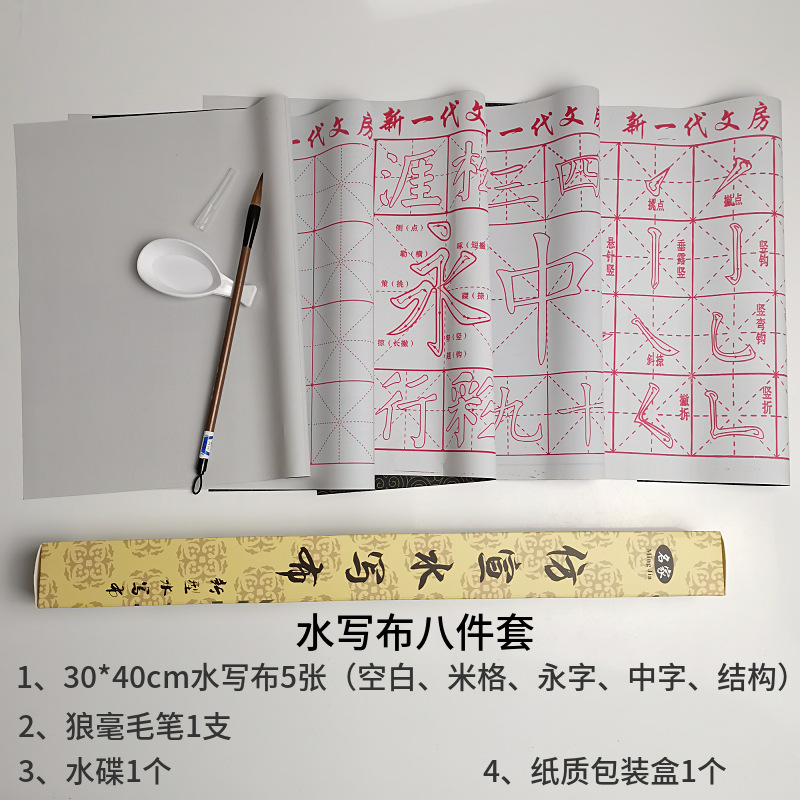 代文房
新一代文房
一代文房
新一代文房
涯
三
四
挑点
撇点
侧(点)
勒(横)
啄(短撇)
永
中
悬针竖
垂露竖
竖钩
策(挑)
磔(捺)
竖弯钩
掠(长撇)
斜捺
行
彩
九
十
撇折
竖折
名家
Ming Jia
仿宣水写布
新型水写布
水写布八件套
1、30*40cm水写布5张（空白、米格、永字、中字、结构）
2、狼毫毛笔1支
3、水碟1个
4、纸质包装盒1个